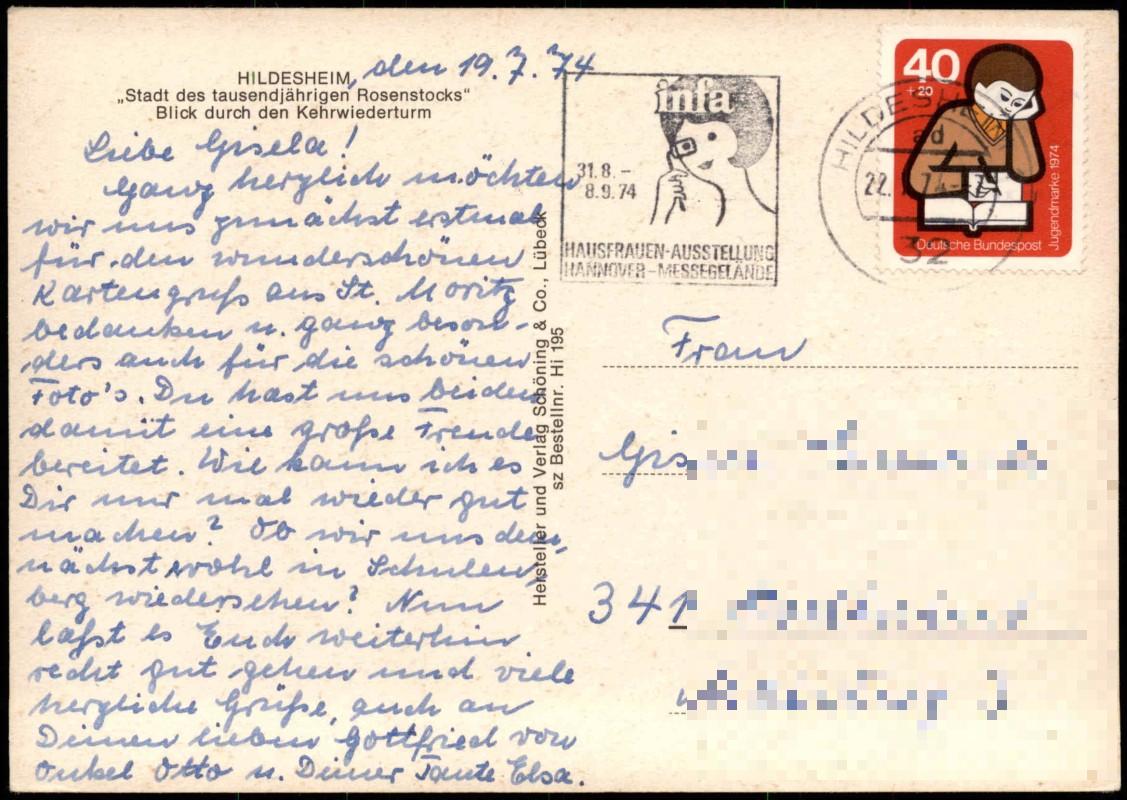 HILDESHEIM, den 19.7.74
„Stadt des tausendjährigen Rosenstocks“
Blick durch den Kehrwiederturm
Liebe Gisela!
Ganz herzlich möchten
wir uns zunächst erstmal
für den wunderschönen
Kartengruß aus St. Moritz
bedanken u. ganz beson-
ders auch für die schönen
Foto's. Du hast uns beiden
damit eine große Freude
bereitet. Wie kann ich es
Dir nur mal wieder gut
machen? Ob wir uns dem-
nächst wohl in Schulen-
berg wiedersehen? Nun
laßt es Euch weiterhin
recht gut gehen und viele
herzliche Grüße, auch an
Deinen lieben Gottfried von
Onkel Otto u. Deiner Tante Elsa.
Hersteller und Verlag Schöning & Co., Lübeck
sz Bestellnr. Hi 195
infa
31.8.–
8.9.74
HAUSFRAUEN-AUSSTELLUNG
HANNOVER-MESSEGELÄNDE
HILDESHE
ad
22. 74
32
40
+20
Jugendmarke 1974
Deutsche Bundespost
Frau
Gis
341